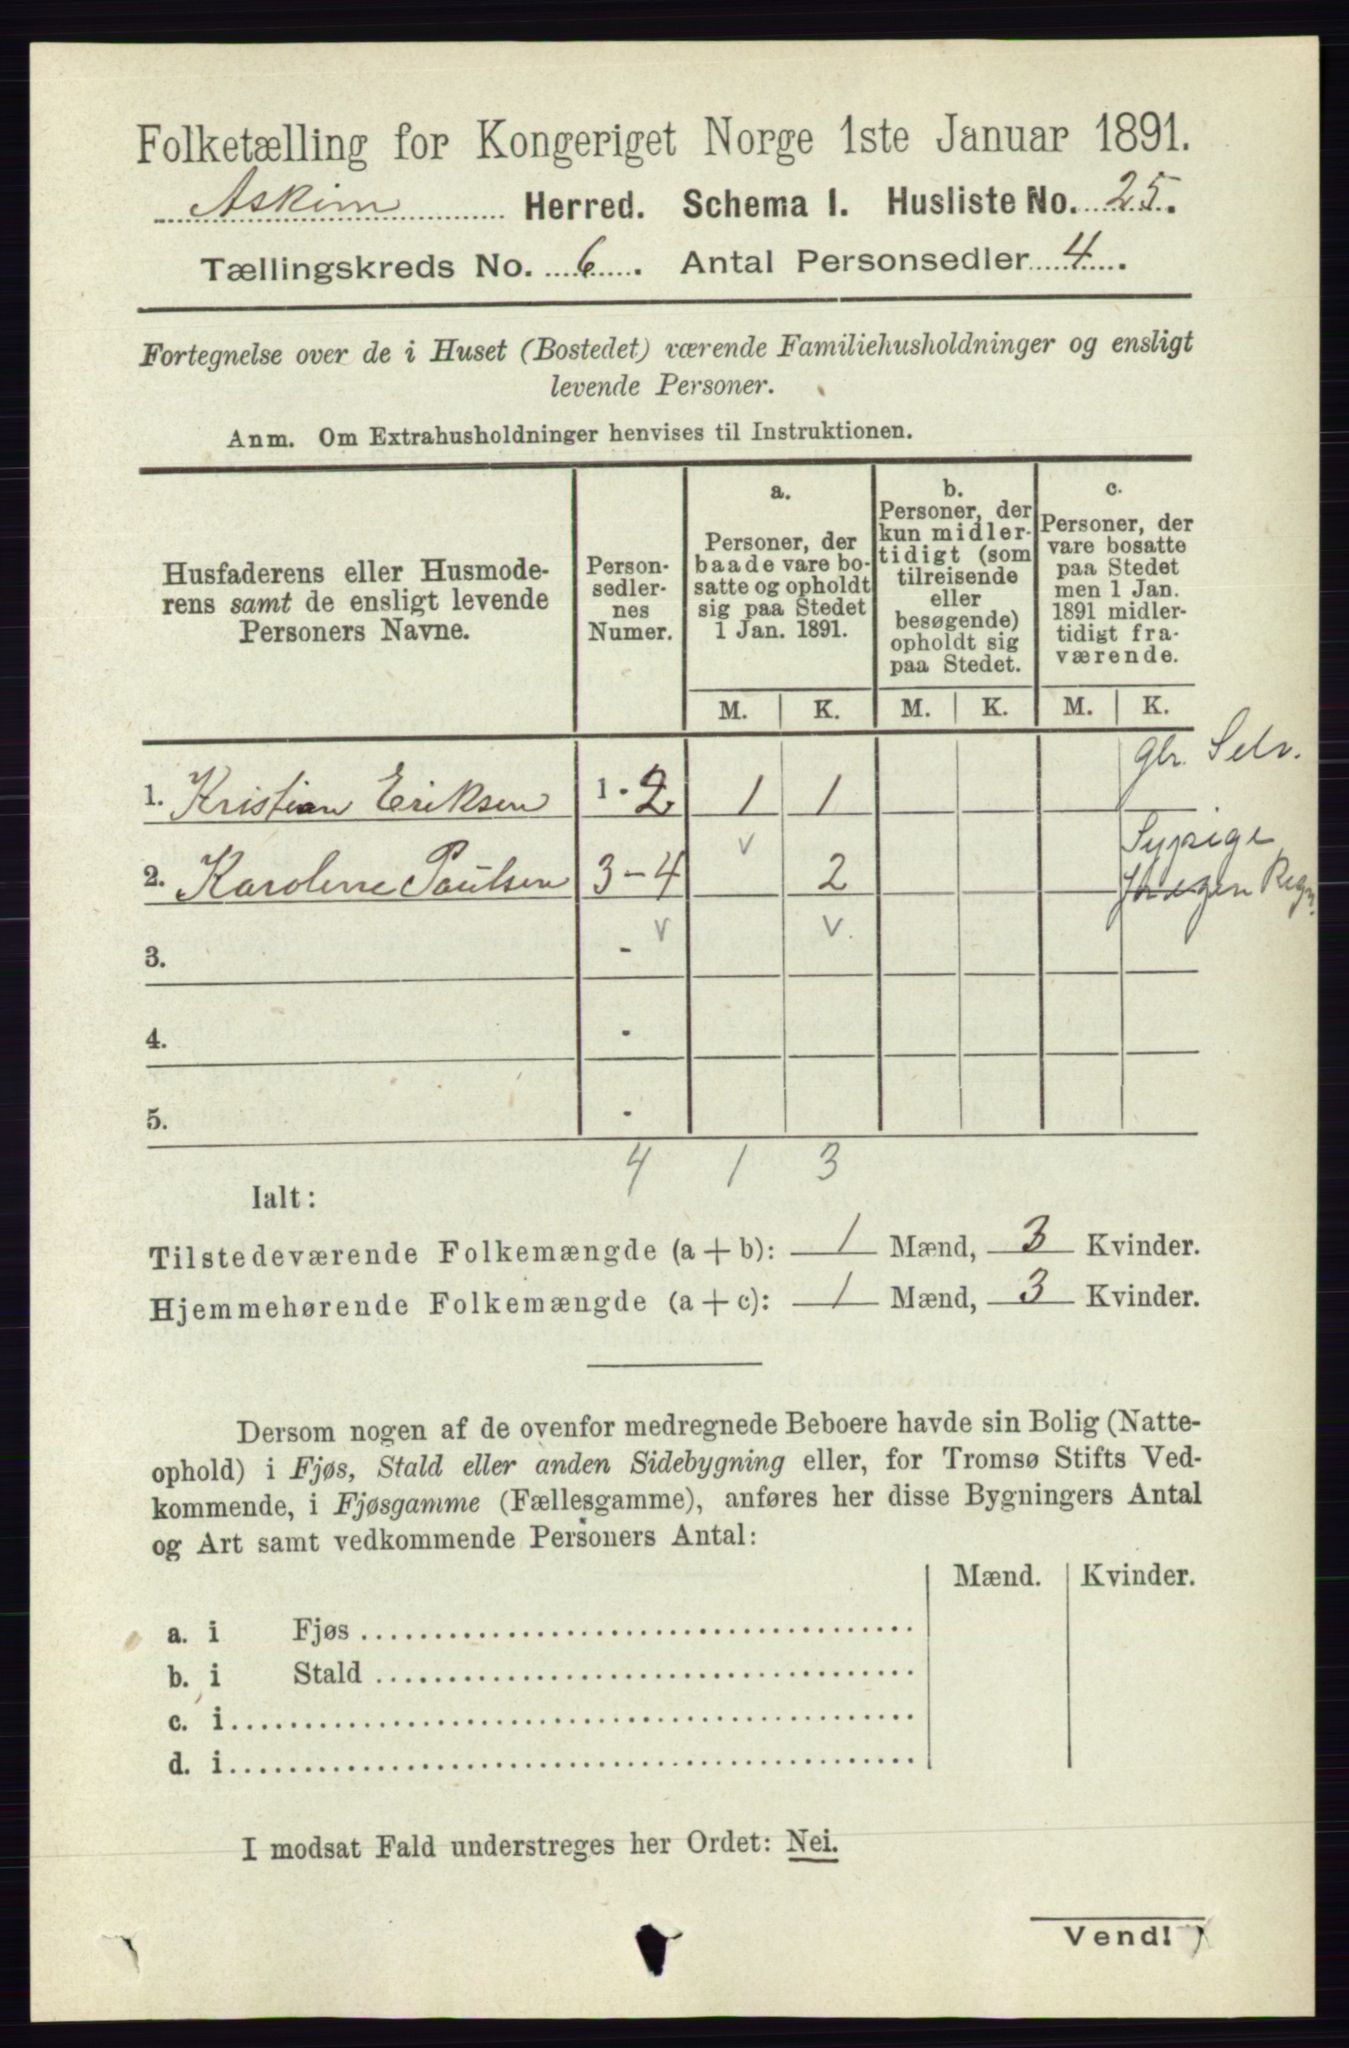 Folketælling for Kongeriget Norge 1ste Januar 1891.
Askim Herred. Schema I. Husliste No. 25.
Tællingskreds No. 6. Antal Personsedler 4.
Fortegnelse over de i Huset (Bostedet) værende Familiehusholdninger og ensligt
levende Personer.
Anm. Om Extrahusholdninger henvises til Instruktionen.
Husfaderens eller Husmode-
rens samt de ensligt levende
Personers Navne.
Person-
sedler-
nes
Numer.
a.
Personer, der
baade vare bo-
satte og opholdt
sig paa Stedet
1 Jan. 1891.
b.
Personer, der
kun midler-
tidigt (som
tilreisende
eller
besøgende)
opholdt sig
paa Stedet.
c.
Personer, der
vare bosatte
paa Stedet
men 1 Jan.
1891 midler-
tidigt fra-
værende.
M. K. M. K. M. K.
gbr. Selv.
1. Kristian Eriksen 1 - 2 1 1
v Sypige
2. Karoline Paulsen 3 - 4 2
3. - v v.
4. -
5. -
4 1 3
Ialt:
Tilstedeværende Folkemængde (a + b): 1 Mænd, 3 Kvinder.
Hjemmehørende Folkemængde (a + c): 1 Mænd, 3 Kvinder.
Dersom nogen af de ovenfor medregnede Beboere havde sin Bolig (Natte-
ophold) i Fjøs, Stald eller anden Sidebygning eller, for Tromsø Stifts Ved-
kommende, i Fjøsgamme (Fællesgamme), anføres her disse Bygningers Antal
og Art samt vedkommende Personers Antal:
Mænd. Kvinder.
a. i Fjøs
b. i Stald
c. i
d. i
I modsat Fald understreges her Ordet: Nei.
Vend!